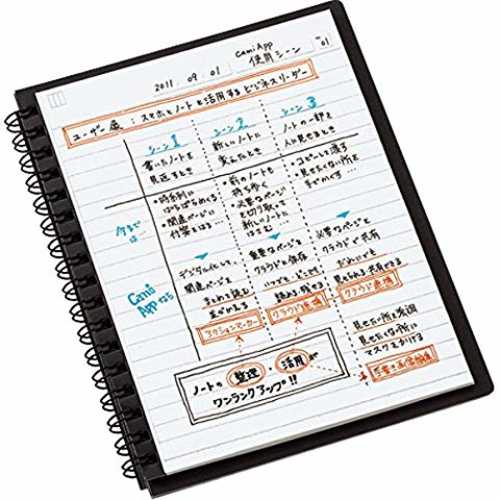 2011.09.01
CamiApp
使用シーン
01
ユーザー像：スマホとノートを活用するビジネスリーダー
シーン1
書いたノートを
見返すとき
シーン2
新しいノートに
シーン3
ノートの一部を
人に見せるとき
今までは…
・時系列に
ばらばらめくる
・関連ページに
付箋をはる…
・前のノートも
持ち歩く
・必要なページ
を切り取って
新しいノートに
・コピーして渡す
・見せたくない所を
手でかくす…
CamiAppなら
デジタル化して、
関連ページを
まとめて読む
アクションマーカー
重要なページを
クラウドに保存
いつでも、どこでも
読める、残せる
クラウド連携
必要なページを
クラウドで共有
だれにでも
見せられる、共有できる
クラウド連携
見せたい所を強調
見せたくない所に
マスクをかける
ノートの 整理 活用 が
ワンランクアップ!!